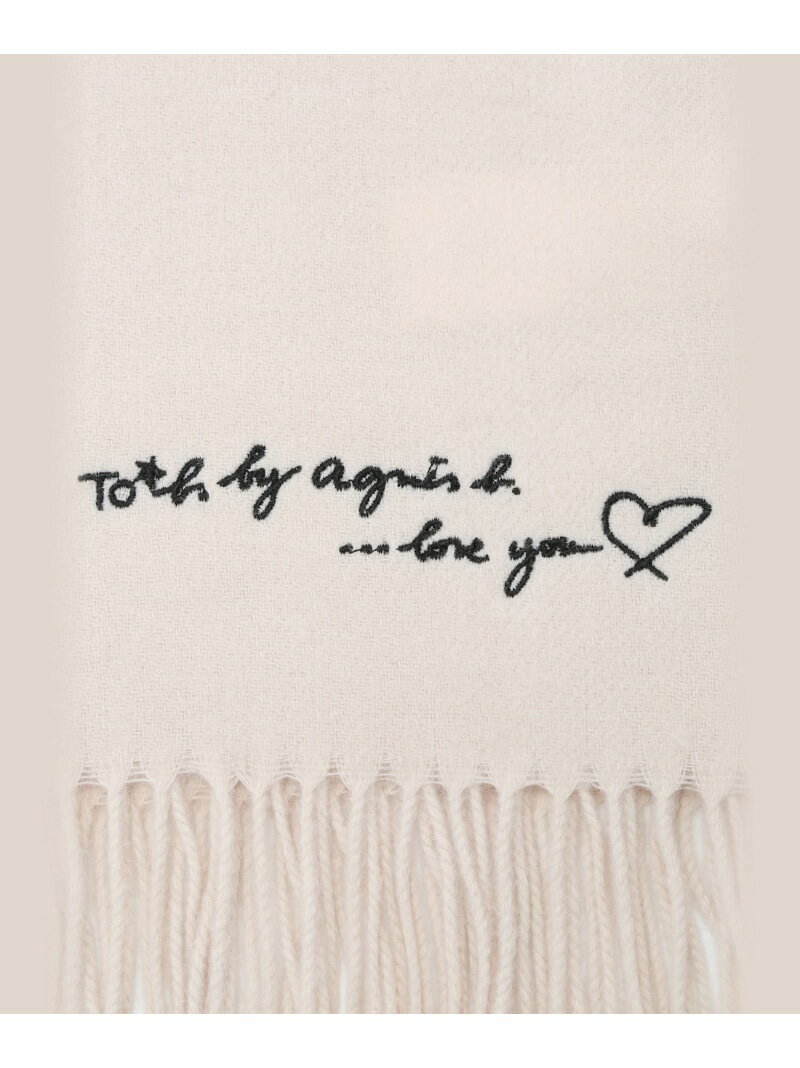 To★b. by agnès b.
... love you